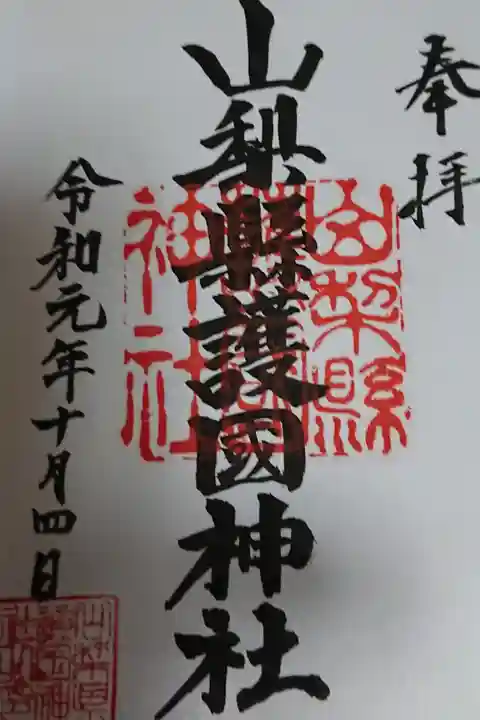 奉拝
山梨縣護國神社
山梨縣
神社
令和元年十月四日